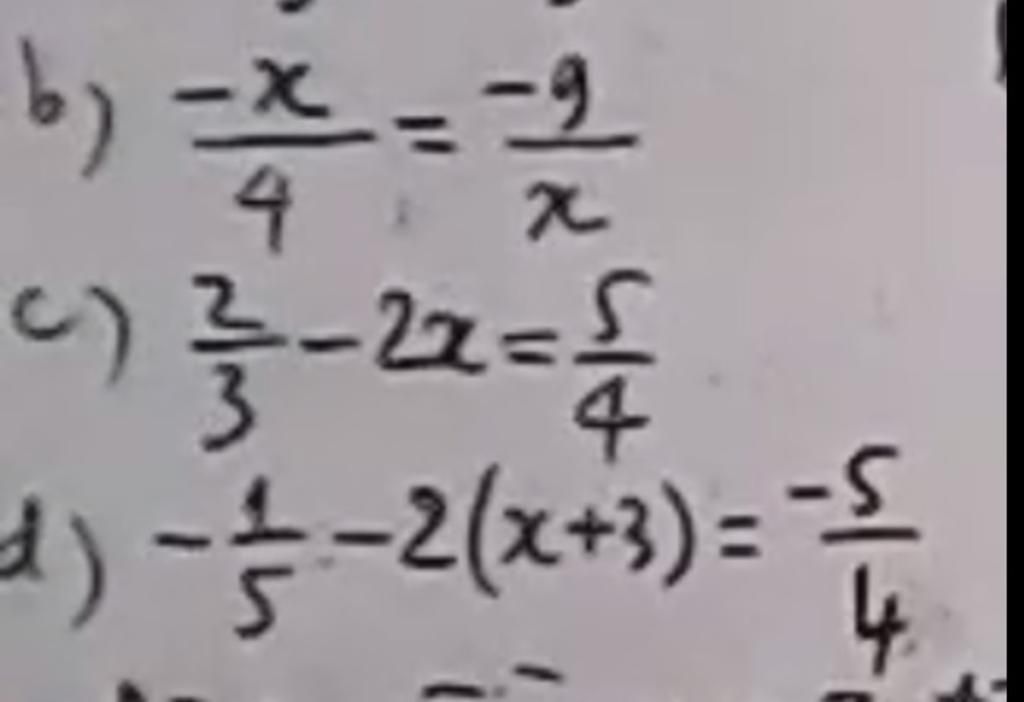 b) -x/4 = -9/x
c) 2/3 - 2x = 5/4
d) -1/5 - 2(x+3) = -5/4